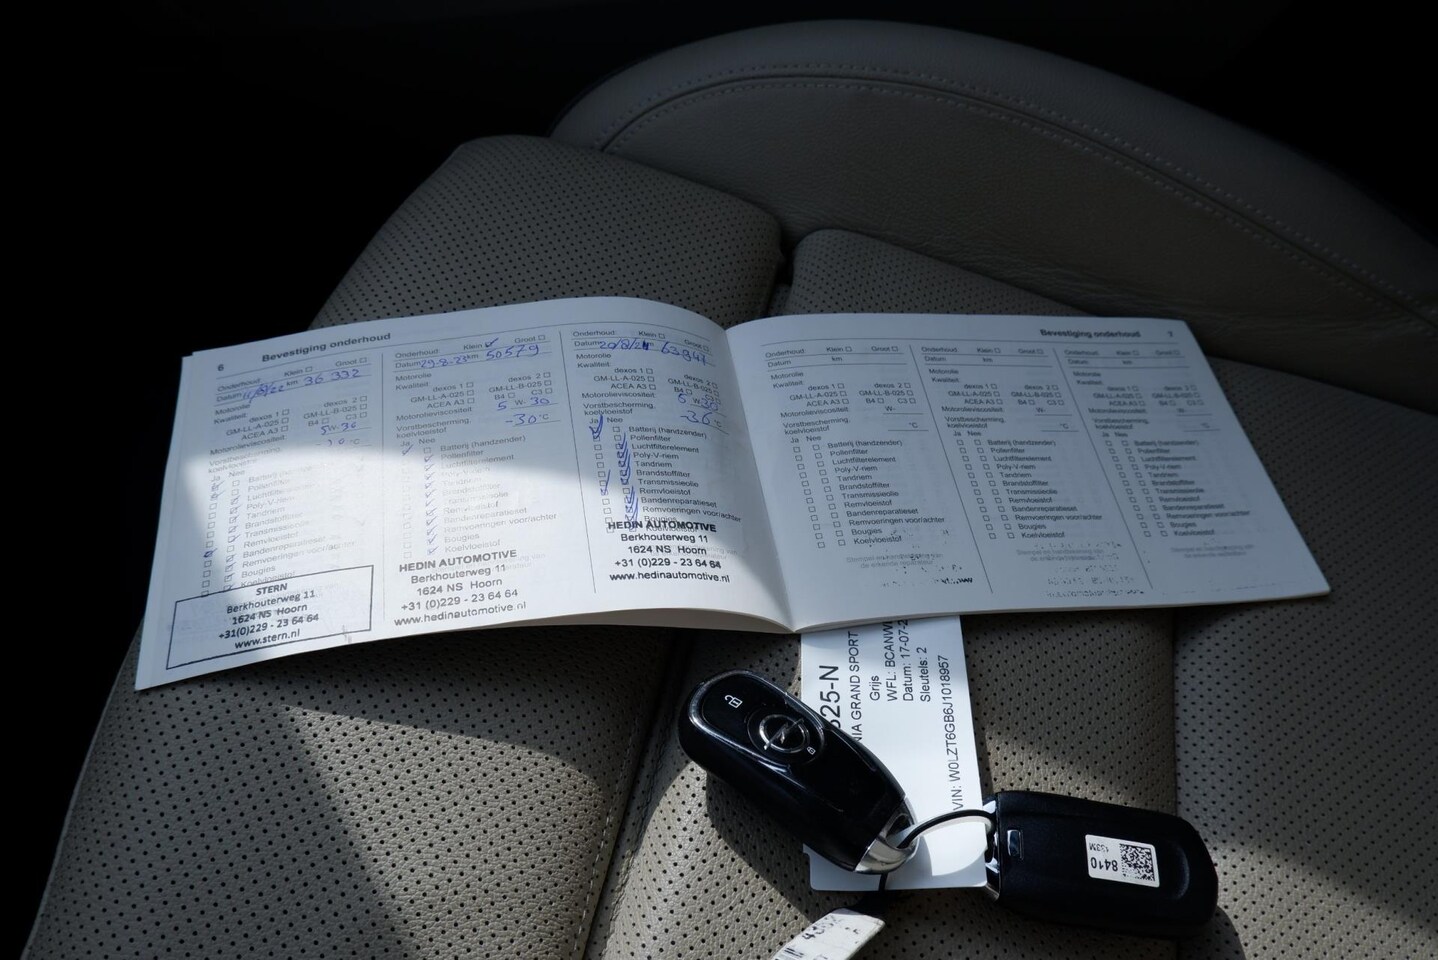 6
Bevestiging onderhoud
Onderhoud: Klein Groot
Datum km 36 332
Motorolie
Kwaliteit:
dexos 1 dexos 2
GM-LL-A-025 GM-LL-B-025
ACEA A3 B4
Motorolieviscositeit 5W-30
Vorstbescherming,
koelvloeistof
Ja Nee
Batterij
Pollenfilter
Poly-V-riem
Tandriem
Brandstoffilter
Transmissieolie
Remvloeistof
Bandenreparatieset
Bougies
STERN
Berkhouterweg 11
1624 NS Hoorn
+31(0)229 - 23 64 64
www.stern.nl
Onderhoud: Klein Groot
Datum 29-8-23 km 50579
Motorolie
Kwaliteit:
dexos 1 dexos 2
GM-LL-A-025 GM-LL-B-025
ACEA A3 B4 C3
Motorolieviscositeit 5 W-30
Vorstbescherming,
koelvloeistof -30 °C
Ja Nee
Batterij (handzender)
Pollenfilter
Luchtfilterelement
Tandriem
Brandstoffilter
Remvloeistof
Bandenreparatieset
Remvoeringen voor/achter
Bougies
Koelvloeistof
HEDIN AUTOMOTIVE
Berkhouterweg 11
1624 NS Hoorn
+31 (0)229 - 23 64 64
www.hedinautomotive.nl
Onderhoud: Klein Groot
Datum km
Motorolie
Kwaliteit:
dexos 1 dexos 2
GM-LL-A-025 GM-LL-B-025
ACEA A3 B4 C3
Motorolieviscositeit 5 W-30
Vorstbescherming,
koelvloeistof -36 °C
Ja Nee
Batterij (handzender)
Pollenfilter
Luchtfilterelement
Poly-V-riem
Tandriem
Brandstoffilter
Transmissieolie
Remvloeistof
Bandenreparatieset
Remvoeringen voor/achter
Bougies
Koelvloeistof
HEDIN AUTOMOTIVE
Berkhouterweg 11
1624 NS Hoorn
+31 (0)229 - 23 64 64
www.hedinautomotive.nl
Bevestiging onderhoud
7
Onderhoud: Klein Groot
Datum km
Motorolie
Kwaliteit:
dexos 1 dexos 2
GM-LL-A-025 GM-LL-B-025
ACEA A3 B4 C3
Motorolieviscositeit W-
Vorstbescherming,
koelvloeistof °C
Ja Nee
Batterij (handzender)
Pollenfilter
Luchtfilterelement
Poly-V-riem
Tandriem
Brandstoffilter
Transmissieolie
Remvloeistof
Bandenreparatieset
Remvoeringen voor/achter
Bougies
Koelvloeistof
Onderhoud: Klein Groot
Datum km
Motorolie
Kwaliteit:
dexos 1 dexos 2
GM-LL-A-025 GM-LL-B-025
ACEA A3 B4 C3
Motorolieviscositeit W-
Vorstbescherming,
koelvloeistof °C
Ja Nee
Batterij (handzender)
Pollenfilter
Luchtfilterelement
Poly-V-riem
Tandriem
Brandstoffilter
Transmissieolie
Remvloeistof
Bandenreparatieset
Remvoeringen voor/achter
Bougies
Koelvloeistof
Onderhoud: Klein Groot
Datum km
Motorolie
Kwaliteit:
dexos 1 dexos 2
GM-LL-A-025 GM-LL-B-025
ACEA A3 B4 C3
Motorolieviscositeit W-
Vorstbescherming,
koelvloeistof °C
Ja Nee
Batterij (handzender)
Pollenfilter
Luchtfilterelement
Poly-V-riem
Tandriem
Brandstoffilter
Transmissieolie
Remvloeistof
Bandenreparatieset
Remvoeringen voor/achter
Bougies
Koelvloeistof
325-N
NIA GRAND SPORT
Grijs
WFL: BCANW
Datum: 17-07-2
Sleutels: 2
VIN: W0LZT6GB6J1018957
8410
133M